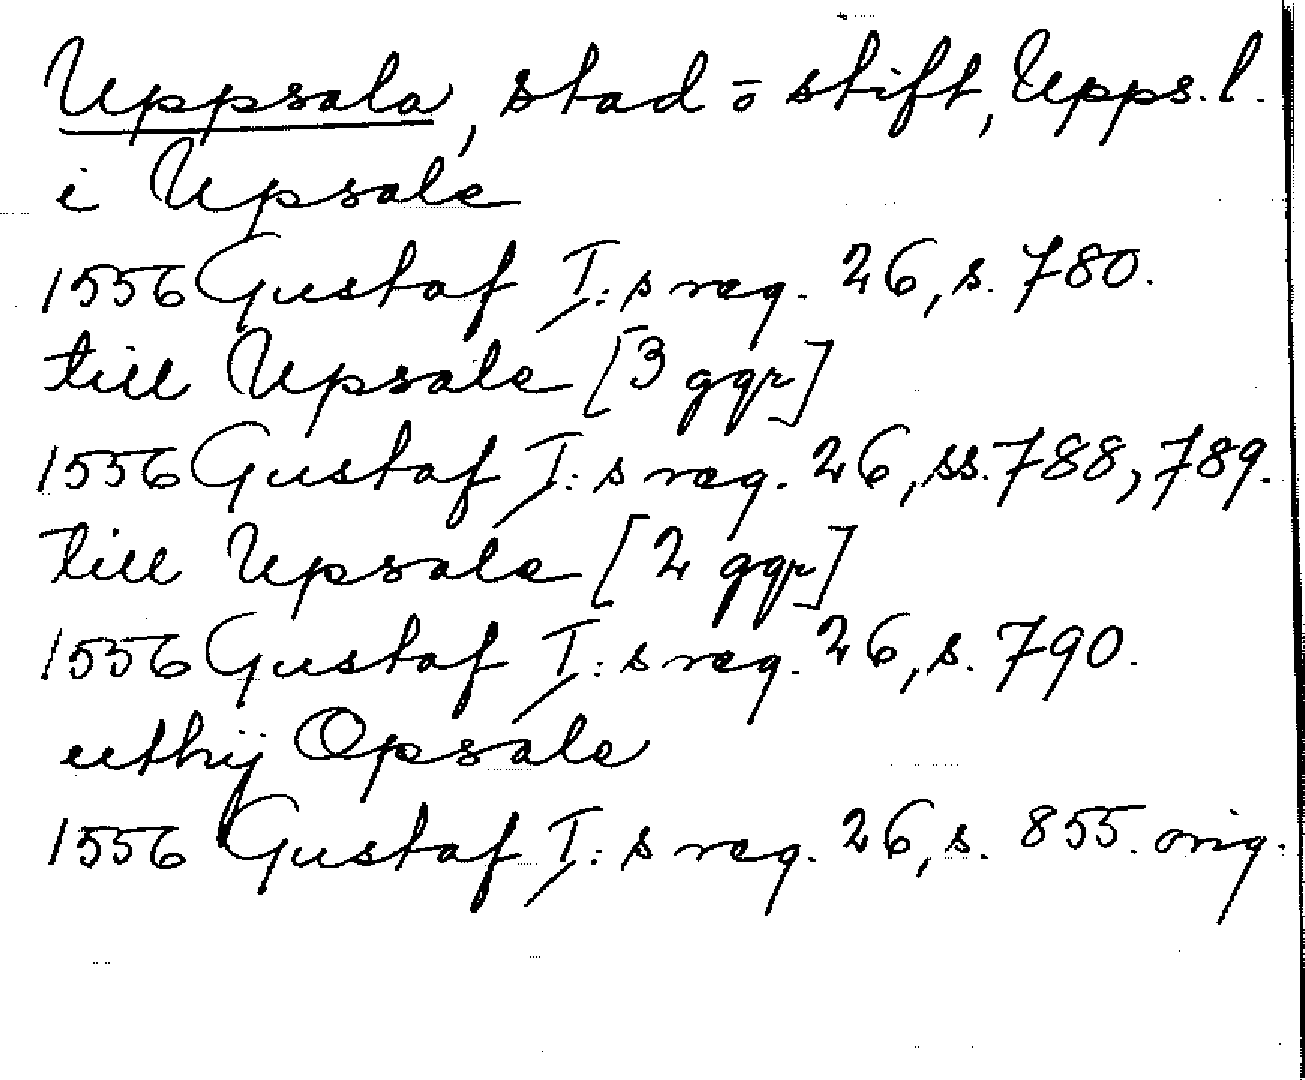 Uppsala, stad o stift, Upps. l.
i Upsale
1556 Gustaf I:s reg. 26, s. 780.
till Upsale [3 ggr]
1556 Gustaf I:s reg. 26, ss. 788, 789.
till Upsale [2 ggr]
1556 Gustaf I:s reg. 26, s. 790.
uthij Opsale
1556 Gustaf I:s reg. 26, s. 855. orig.